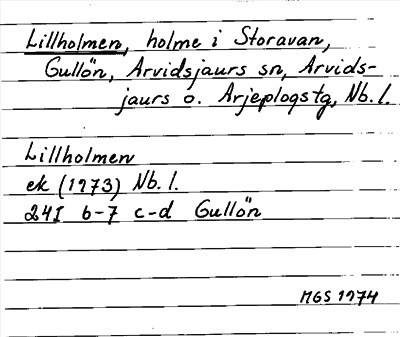 Lillholmen, holme i Storavan,
Gullön, Arvidsjaurs sn, Arvids-
jaurs o. Arjeplogs tg, Nb. l.
Lillholmen
ek (1973) Nb. l.
24I 6-7 c-d Gullön
MGS 1974